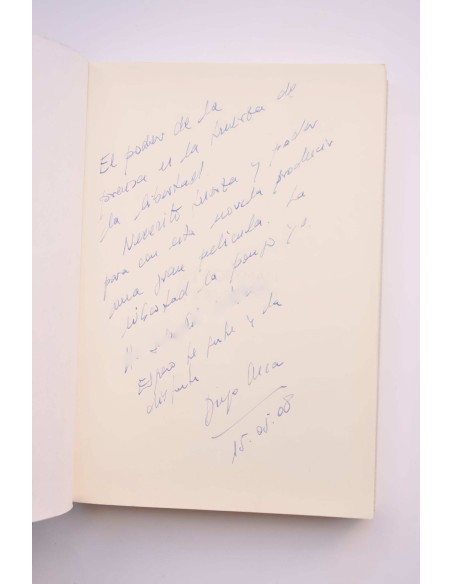 El poder de la
prensa es la fuerza de
la libertad
Necesito fuerza y poder
para con esta novela producir
una gran película. La
libertad la pongo yo.
Espero te guste y la
disfrutes
15.05.08